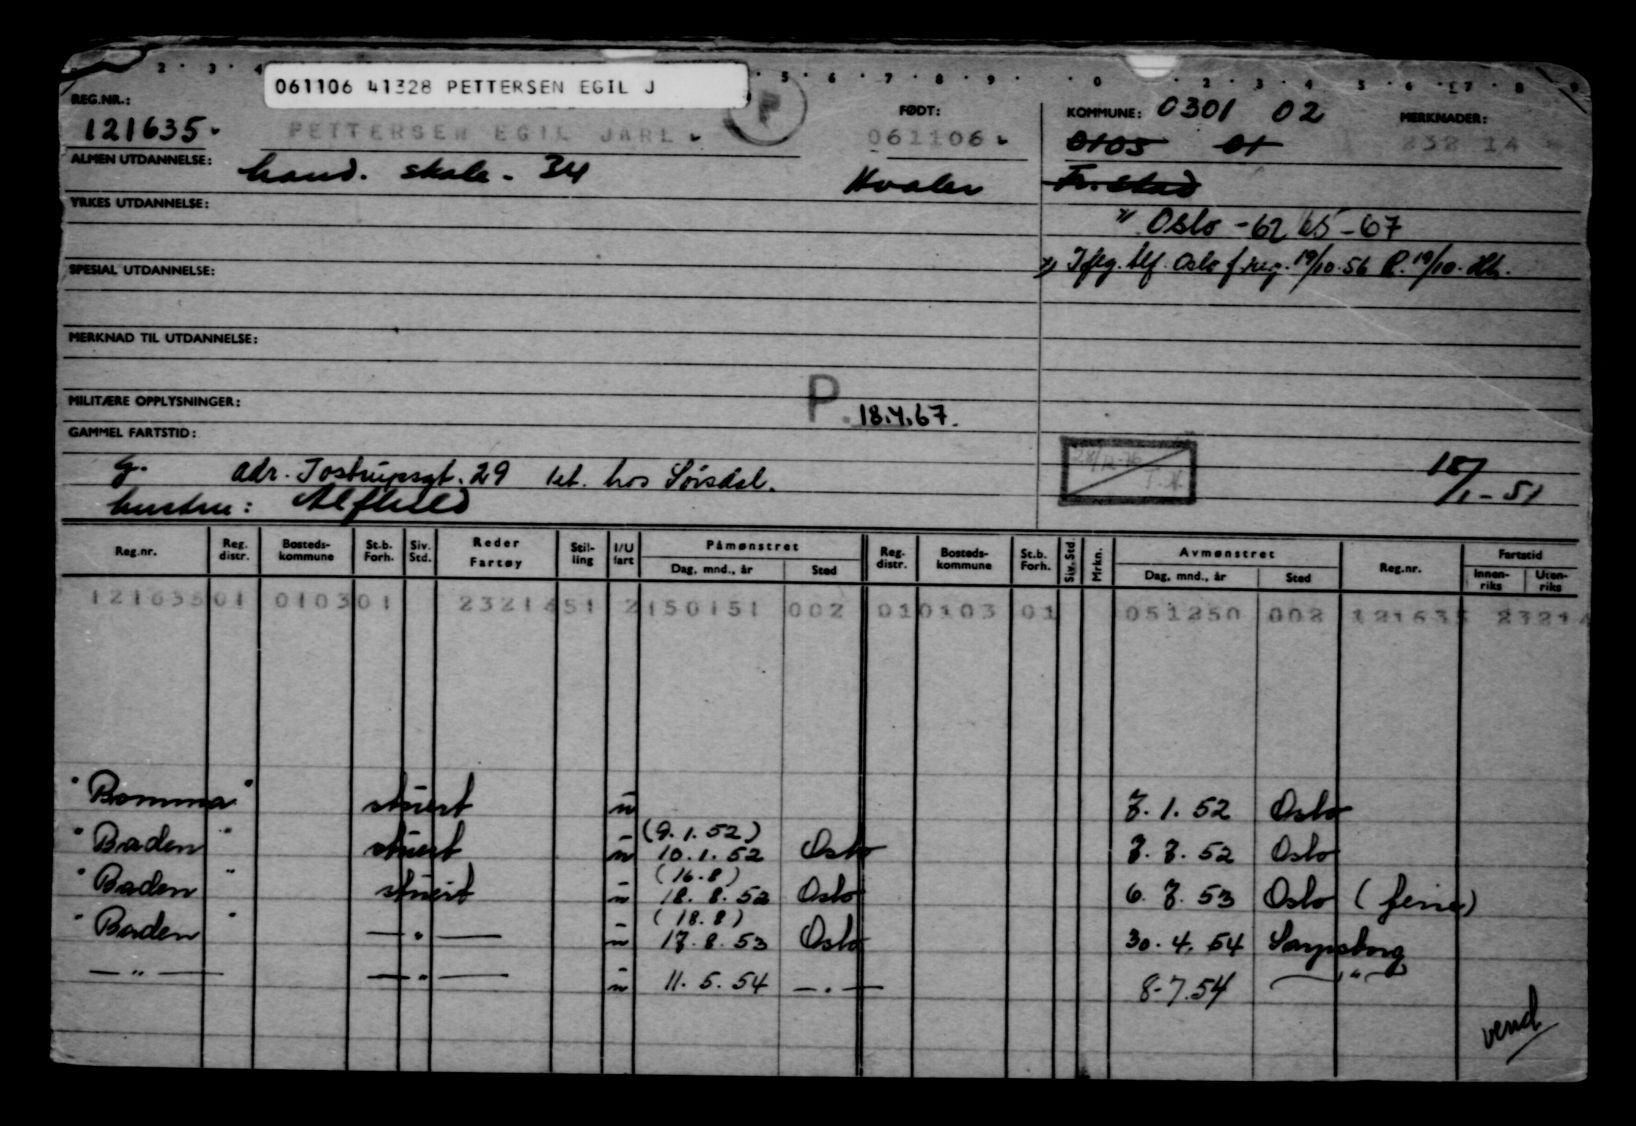 061106 41328 PETTERSEN EGIL J
REG.NR.: FØDT: KOMMUNE: 0301 02 MERKNADER:
121635 PETTERSEN EGIL JARL 061106 0103 01 232 14
ALMEN UTDANNELSE: hand. skole - 34 Hvaler Fr.stad
YRKES UTDANNELSE:
" Oslo -62 65-67
SPESIAL UTDANNELSE: Oslo 19/10.56 19/10.
MERKNAD TIL UTDANNELSE:
P
MILITÆRE OPPLYSNINGER: 18.4.67.
GAMMEL FARTSTID:
g. adr. Tostrupsgt. 29 hos Sörsdal. 15/1-51
hustru: Alfhild
Reg.nr. Reg. distr. Bosteds-kommune St.b. Forh. Siv. Std. Reder Fartøy Stil-ling I/U fart Påmønstret Reg. distr. Bosteds-kommune St.b. Forh. Siv. Std. Mrkn. Avmønstret Reg.nr. Fartstid
Dag, mnd., år Sted Dag, mnd., år Sted Innen-riks Uten-riks
121635 01 0103 01 23214 51 2 150151 002 01 0103 01 051250 002 121635 23214
"Bomma" stuert u 7.1.52 Oslo
(9.1.52)
"Baden" stuert u 10.1.52 Oslo 7.7.52 Oslo
(16.8)
"Baden" stuert u 18.8.52 Oslo 6.7.53 Oslo (ferie)
(18.8)
"Baden" — " — u 17.8.53 Oslo 30.4.54 Sarpsborg
— " — — " — u 11.5.54 — " — 8.7.54 — " —
vend